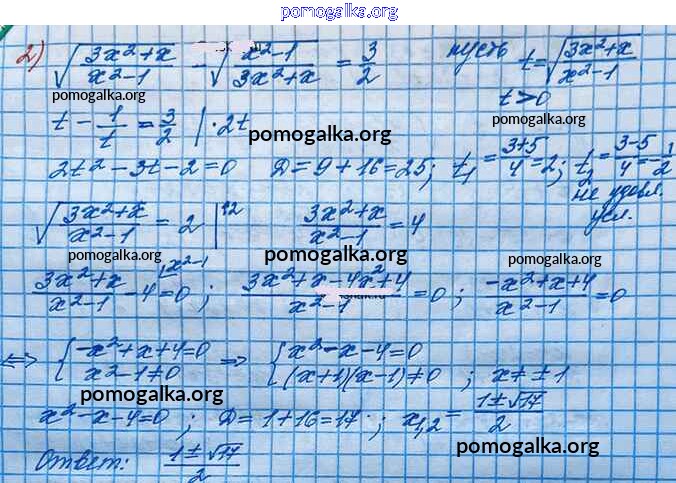 pomogalka.org
2) √((3x²+x)/(x²-1)) - √((x²-1)/(3x²+x)) = 3/2 пусть t=√((3x²+x)/(x²-1))
pomogalka.org t>0
t - 1/t = 3/2 | ·2t pomogalka.org pomogalka.org
2t²-3t-2=0 D=9+16=25; t₁=(3+5)/4=2; t₂=(3-5)/4=-1/2
не удовл. усл.
√((3x²+x)/(x²-1)) = 2 |↑2 (3x²+x)/(x²-1)=4
pomogalka.org pomogalka.org pomogalka.org
(3x²+x)/(x²-1) - 4 \x²-1 = 0; (3x²+x-4x²+4)/(x²-1)=0; (-x²+x+4)/(x²-1)=0
⇔ { -x²+x+4=0 ⇒ { x²-x-4=0
x²-1≠0 (x+1)(x-1)≠0; x≠±1
pomogalka.org
x²-x-4=0; D=1+16=17; x₁,₂=(1±√17)/2
pomogalka.org
Ответ: (1±√17)/2